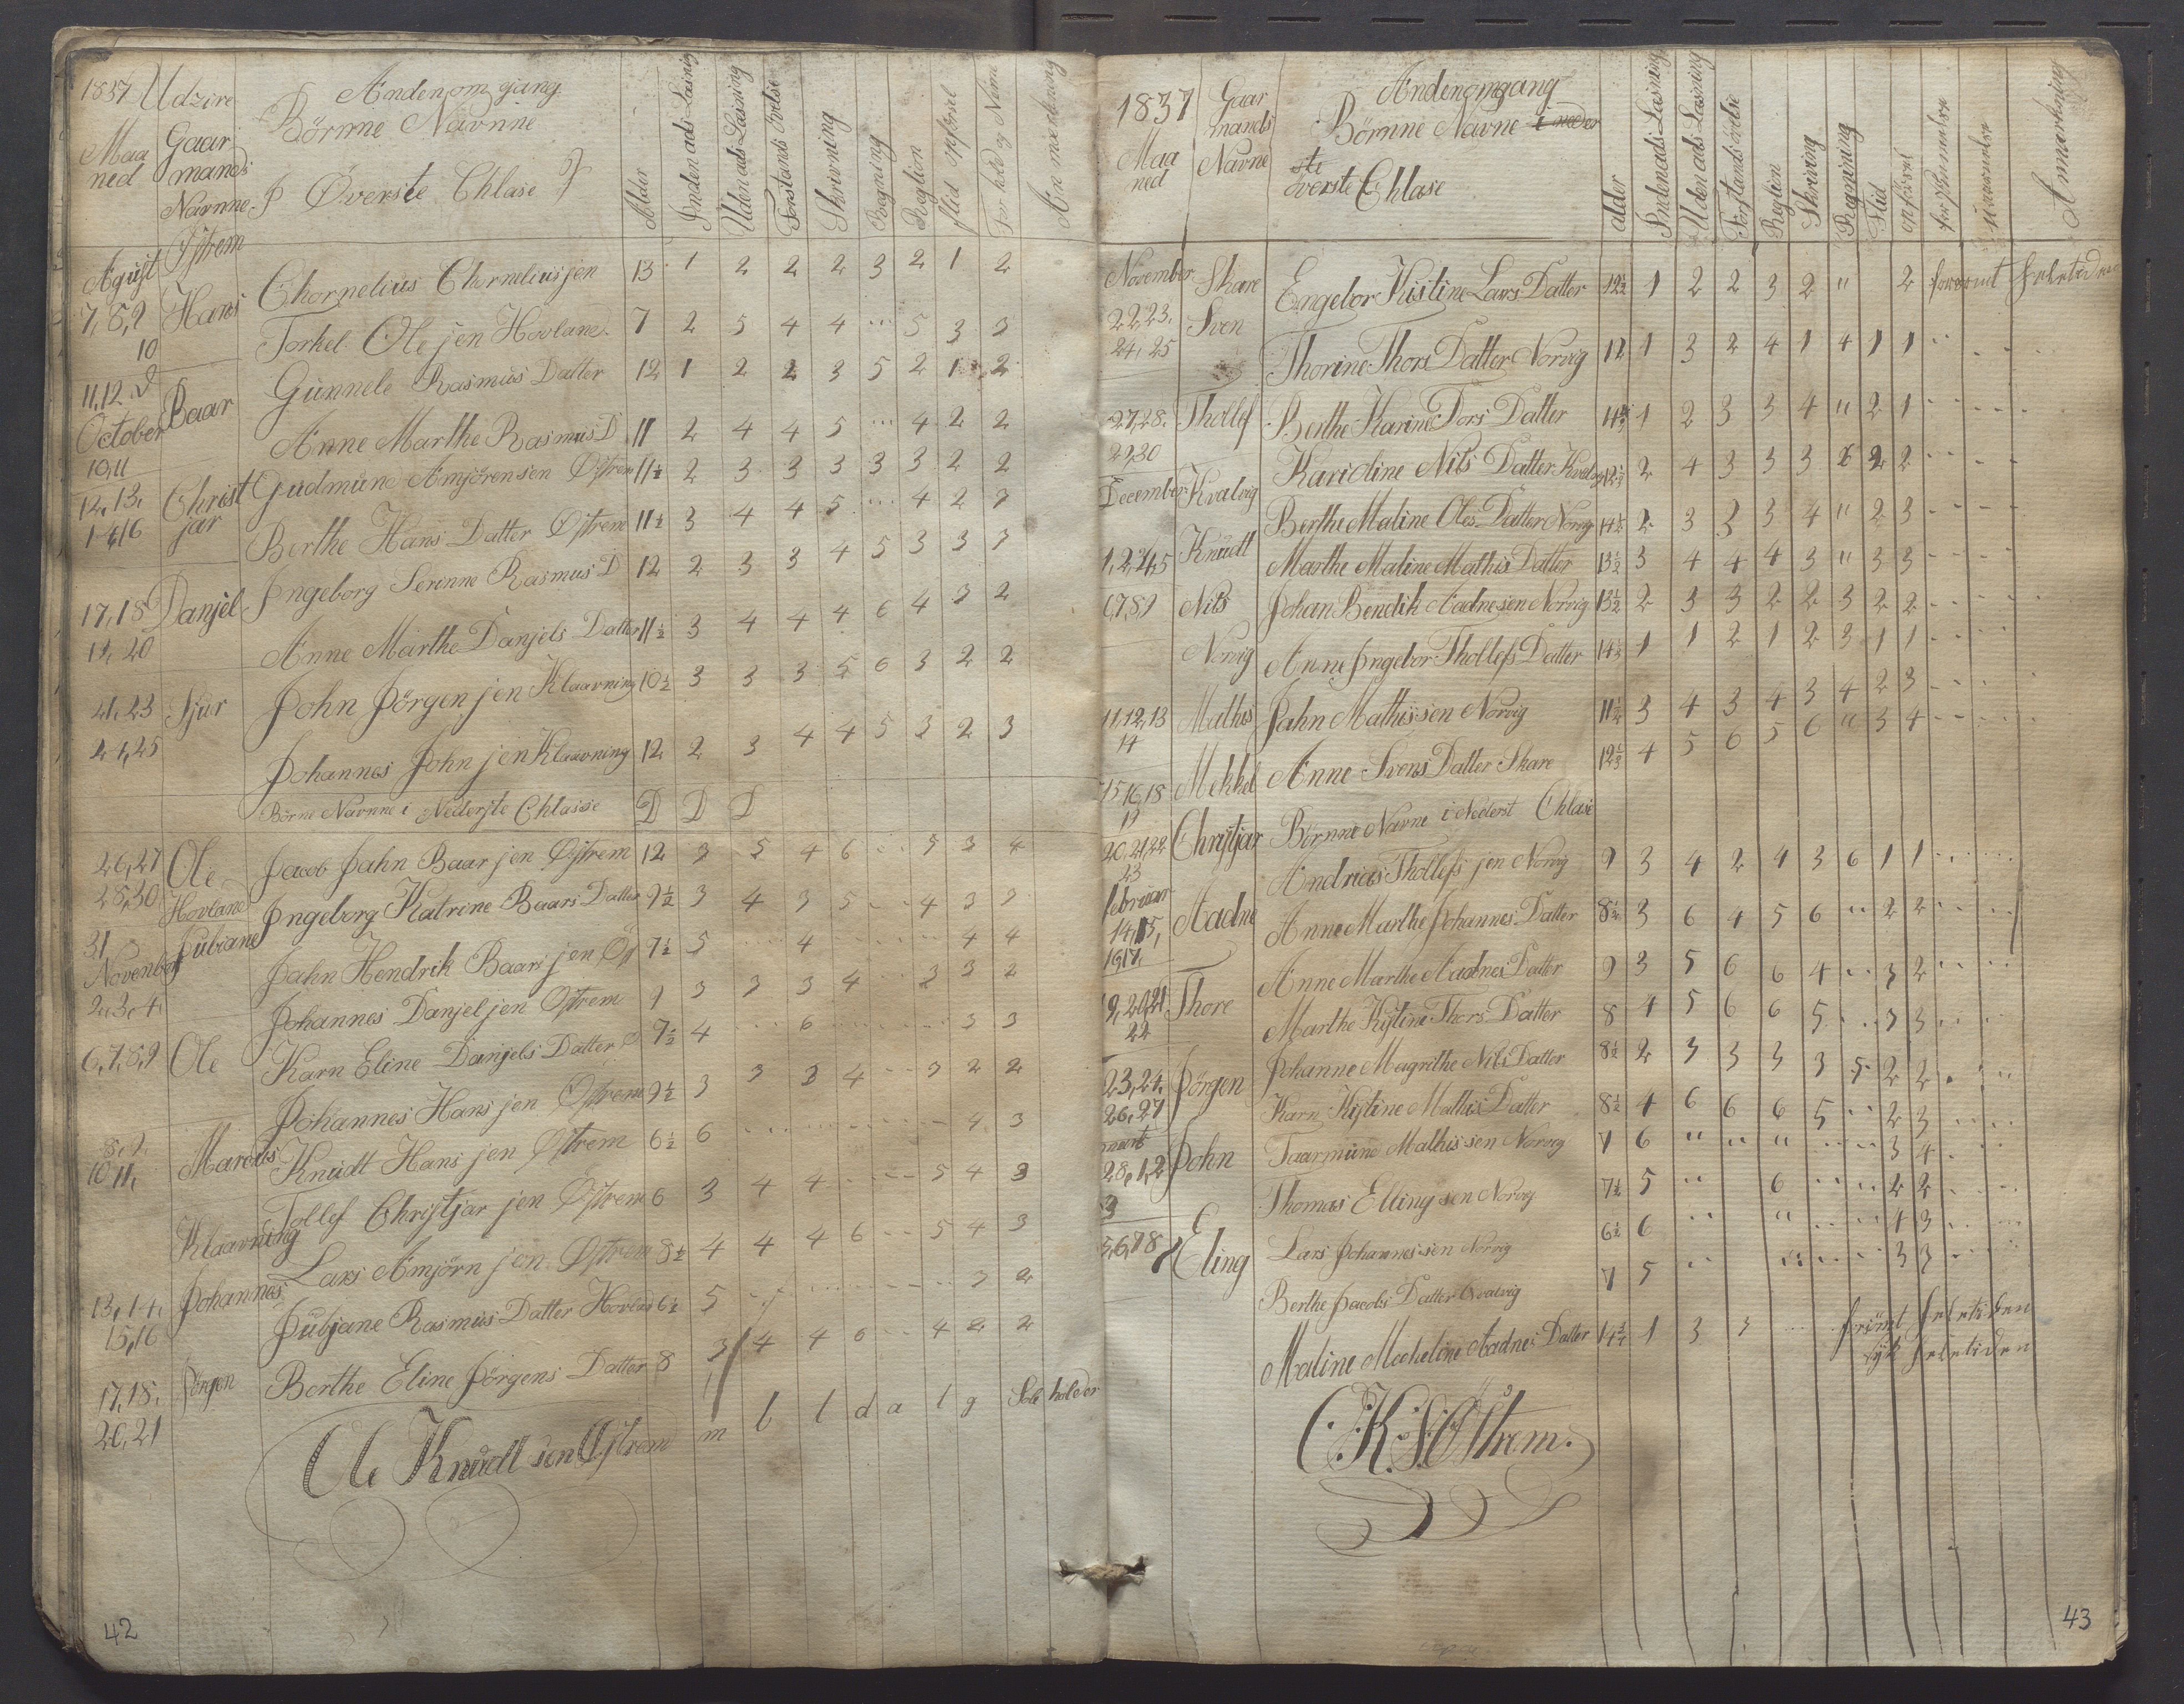 1837 Udzire Andenom gang
Börnne Navnne
Maaned Gaarmands Navnne I Øverste Chlase
Alder Inden ads Läsning Uden ads Läsning Forstands Övelse Skrivning Regning Religion flid opførsel Forhold og Nemme Anmærkning
Agust Øjtrem
7, 8, 9 Hans Chornelius Chorneliusjen 13 1 2 2 2 3 2 1 2
10 Torkel Olejen Hovlane 7 2 5 4 4 ... 5 3 3
11, 12 Baar Gunnele Rasmus Datter 12 1 2 2 3 5 2 1 2
October Anne Marthe Rasmus D 11 2 4 4 5 ... 4 2 2
10, 11
12, 13, Christjar Gudmune Amjörensen Øjtrem 11½ 2 3 3 3 3 3 2 2
14, 16 Berthe Hans Datter Øjtrem 11½ 3 4 4 5 ... 4 2 3
17, 18 Danjel Ingeborg Serinne Rasmus D 12 2 3 3 4 5 3 3 3
19, 20 Anne Marthe Danjels Datter 11½ 3 4 4 4 6 4 3 2
21, 23 Sjur John Jörgenjen Klaavning 10½ 3 3 3 5 6 3 2 2
24, 25 Johannes Johnjen Klaavning 12 2 3 4 4 5 3 2 3
Börne Navnne i Nederste Chlasse D D D
26, 27 Ole Jacob Jahn Baarjen Øjtrem 12 3 5 4 6 .. 5 3 4
28, 30 Hovlane Ingeborg Katrine Baars Datter 9½ 3 4 3 5 .. 4 3 3
31 Jubiane Jahn Hendrik Baarsjen Øj 7½ 5 ... 4 ... 4 4
November
2, 3, 4, Johannes Danjeljen Øjtrem 9 3 3 3 4 .. 3 3 2
6, 7, 8, 9 Ole Karn Eline Danjels Datter Ø 7½ 4 ... 6 ... 3 3
Johannes Hansjen Øjtrem 9½ 3 3 3 4 .. 3 2 2
8, 9, 10 11, Marcus Knudt Hansjen Øjtrem 6½ 6 ... 4 3
Klaavning Tollef Christjarjen Øjtrem 6 3 4 4 ... 5 4 3
Lars Amjörnjen Øjtrem 8½ 4 4 4 6 .. 5 4 3
13, 14, Johannes Jubjane Rasmus Datter Hovland 6½ 5 ... 3 2
15, 16
17, 18, Jörgen Berthe Eline Jörgens Datter 8 3 4 4 6 .. 4 2 2
20, 21 Ole Knudtsen Øjtrem m b l d a l g Sole holder
42
1837 Gaarmands Navne Andenomgang
Maaned Börnne Navne i neder
ste
överste Chlase
alder Indenads Läsning Uden ads Läsning Forstands övelse Religion Skrivning Regnining Flid opförsel forsömmelse Anmærkning
November Skare Engebor Kistine Lars Datter 12½ 1 2 2 3 2 " 2 forsömt heletiden
22, 23, Sven
24, 25 Thorine Thors Datter Norvig 12 1 3 2 4 1 4 1 1
27, 28, Thollef Berthe Karine Tors Datter 11½ 1 2 3 3 4 " 2 1
29, 30 Karidine Nils Datter Kvalvig 12½ 2 4 3 3 3 6 2 2
December Kvalvig Berthe Maline Oles Datter Norvig 14½ 2 3 3 3 4 " 2 3
1, 2, 4, 5 Knudt Marthe Maline Mathis Datter 13½ 3 4 4 4 3 " 3 3
6, 7, 8, 9 Nils Johan Bendik Aadnesen Norvig 13½ 2 3 3 2 2 3 2 2
Norvig Anne Ingebor Thollefs Datter 14½ 1 1 2 1 2 3 1 1
11, 12, 13 Mathis Jahn Mathissen Norvig 11½ 3 4 3 4 3 4 2 3
14
15, 16, 18 Mekkel Anne Svens Datter Skare 12½ 4 5 6 5 6 " 3 4
19
20, 21, 22 Christjar Börnne Navne i Nederst Chlase
23 Andrias Thollefsjen Norvig 9 3 4 2 4 3 6 1 1
februar Aadne Anne Marthe Johannes Datter 8½ 3 6 4 5 6 " 2 2
14, 15,
16, 17, Anne Marthe Aadnes Datter 9 3 5 6 6 4 .. 3 2
19, 20, 21 Thore Marthe Kjstine Thors Datter 8 4 5 6 6 5 .. 3 3
22 Johanne Magrithe Nils Datter 8½ 2 3 3 3 3 5 2 2
23, 24, Jörgen
26, 27 Karn Kistine Mathis Datter 8½ 4 6 6 6 5 .. 2 3
marts Taarmune Mathissen Norvig 7 6 " " " .. 3 4
28, 1, 2 John
3 Thomas Ellingsen Norvig 7½ 5 .. 6 .. 2 2
5, 6, 7 8 Eling Lars Johannessen Norvig 6½ 6 .. " .. 4 3
Berthe Jacobs Datter Qvalvig 7 5 .. 3 3
Maline Mecheline Aadnes Datter 14¼ 1 3 3 ... forsömt heletiden
syk heletiden
O. K. S. Østrem.
43